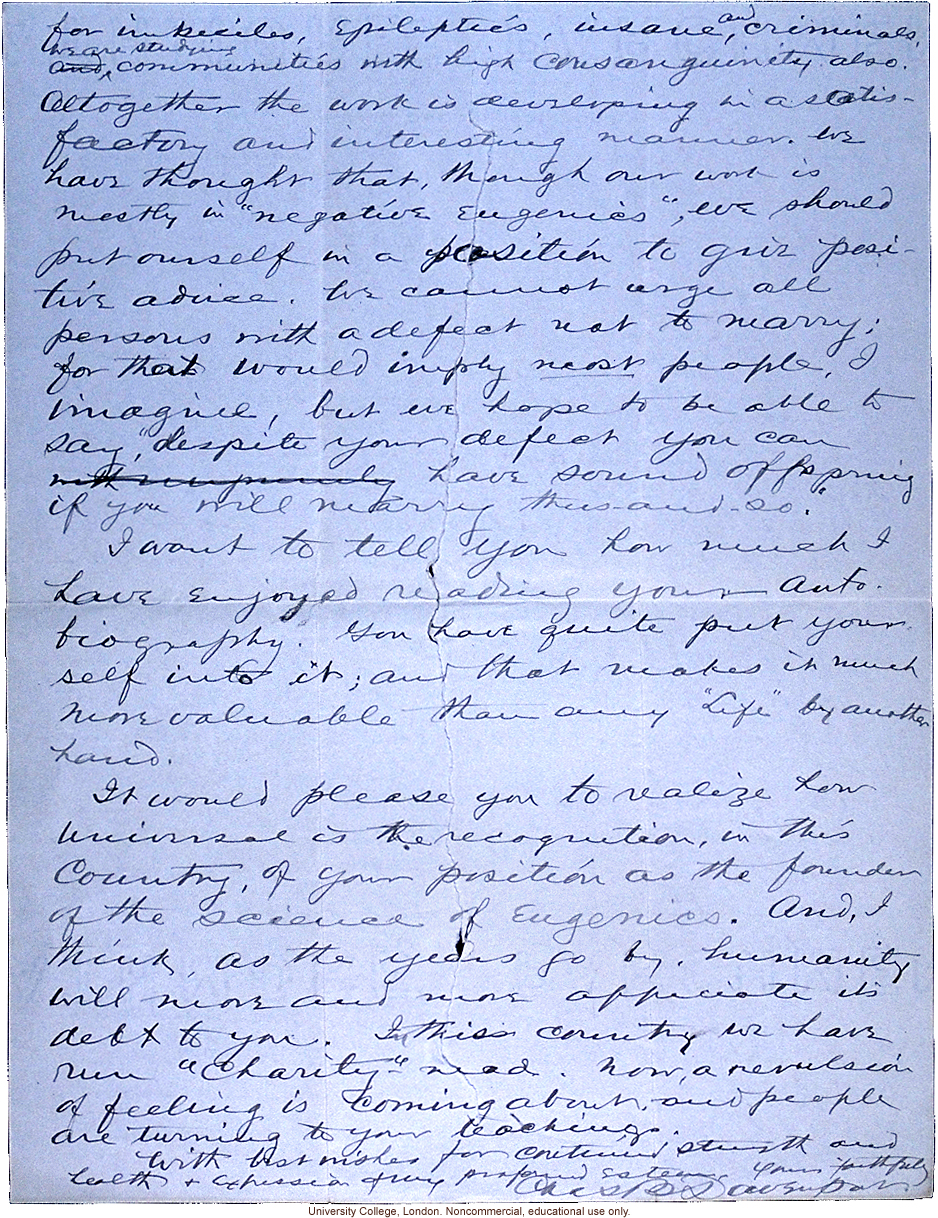 for imbeciles, Epileptics, insane, and criminals,
we are studying
and, communities with high consanguinity also.
Altogether the work is developing in a satis-
factory and interesting manner. We
have thought that, though our work is
mostly in "negative Eugenics", we should
put ourself in a position to give posi-
tive advice. We cannot urge all
persons with a defect not to marry;
for that would imply most people, I
imagine, but we hope to be able to
say, "despite your defect you can
with impunity have sound offspring
if you will marry thus-and-so."
I want to tell you how much I
have enjoyed reading your Auto-
biography. You have quite put your-
self into it; and that makes it much
more valuable than any "Life" by another
hand.
It would please you to realize how
universal is the recognition, in this
Country, of your position as the founder
of the science of Eugenics. And, I
think, as the years go by, humanity
will more and more appreciate its
debt to you. In this country we have
run "Charity" mad. Now, a revulsion
of feeling is coming about, and people
are turning to your teachings.
With best wishes for continued strength and
health & expression of my profound esteem. Yours faithfully
Chas B Davenport
University College, London. Noncommercial, educational use only.